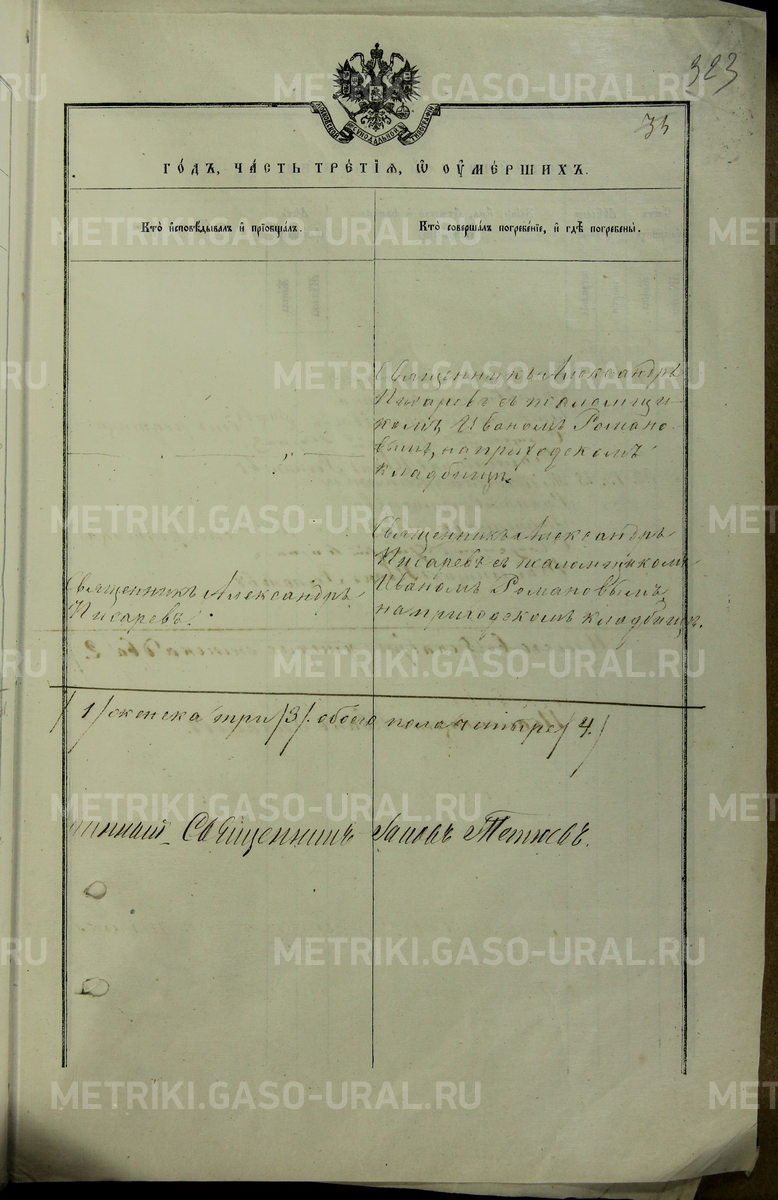 323
МОСКОВСКОЙ СУНОДАЛЬНОЙ ТИПОГРАФІИ
ГО́ДЪ, ЧА́СТЬ ТРЕ́ТІѦ, Ѡ ОУ҆МЕ́РШИХЪ.
Кто̀ и҆сповѣ́дывалъ и҆ прїѡбща́лъ.
Кто̀ соверша́лъ погребе́нїе, и҆ гдѣ̀ погребены̀.
Священникъ Александръ
Писаревъ съ псаломщи-
комъ Иваномъ Романо-
вымъ, на приходскомъ
кладбищѣ.
Священникъ Александръ
Писаревъ.
Священникъ Александръ
Писаревъ съ псаломщикомъ
Иваномъ Романовымъ,
на приходскомъ кладбищѣ.
/1/ женска три /3/. обоего пола четыре /4./
Священникъ Іаковъ
METRIKI.GASO-URAL.RU